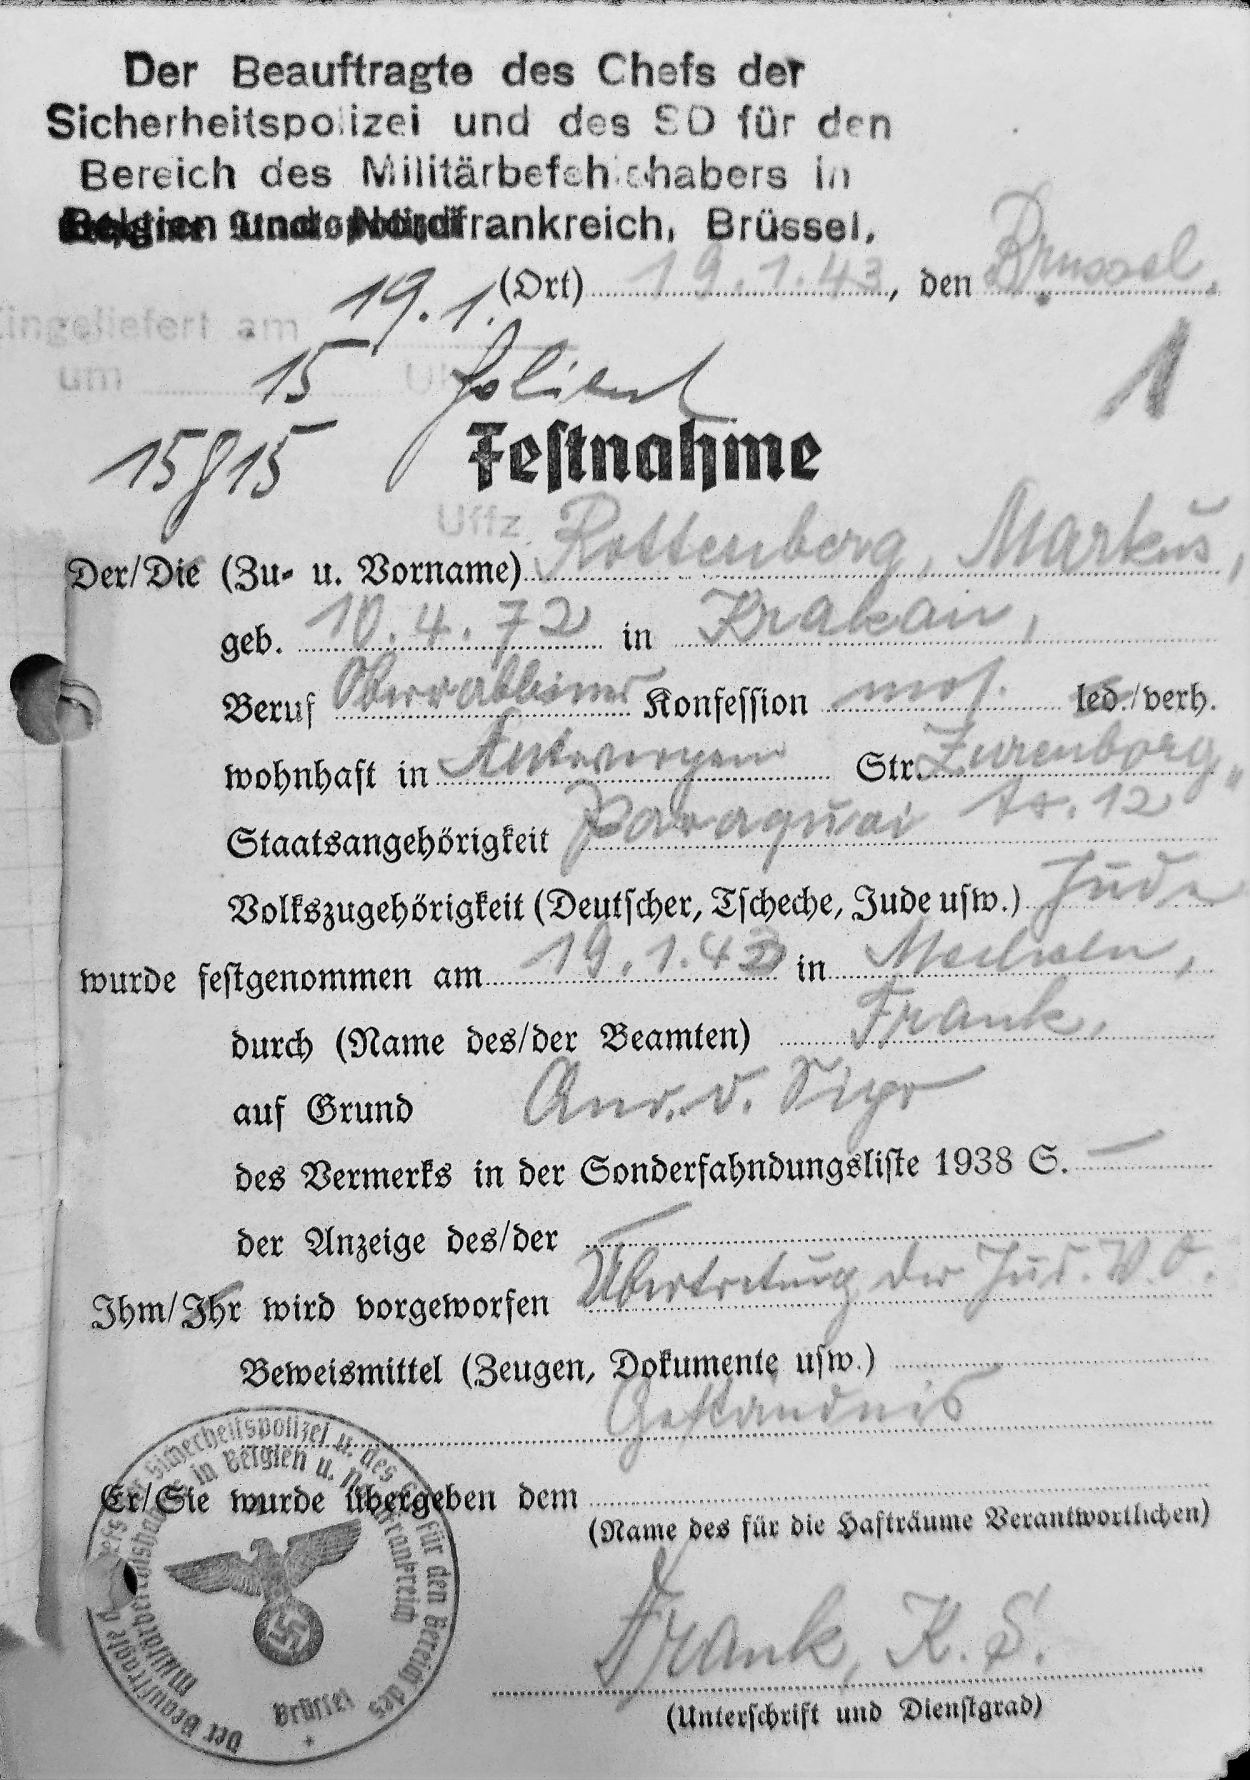 Der Beauftragte des Chefs der
Sicherheitspolizei und des SD für den
Bereich des Militärbefehlshabers in
Belgien und Nordfrankreich, Brüssel.
(Ort) 19.1.43, den Brüssel.
Eingeliefert am 19.1.
um 15 Uhr
1
15 15
Festnahme
Uffz.
Der/Die (Zu- u. Vorname) Rottenberg, Markus,
geb. 10.4.72 in Krakau,
Beruf Oberrabbiner Konfession mos. led./verh.
wohnhaft in Antwerpen Str. Zurenborg
str. 12
Staatsangehörigkeit Paraquai
Volkszugehörigkeit (Deutscher, Tscheche, Jude usw.) Jude
wurde festgenommen am 19.1.43 in Mecheln,
durch (Name des/der Beamten) Frank,
auf Grund Anr. d. Sipo
des Vermerks in der Sonderfahndungsliste 1938 S. —
der Anzeige des/der —
Ihm/Ihr wird vorgeworfen Übertretung der Jud. V.O.
Beweismittel (Zeugen, Dokumente usw.)
Geständnis
Er/Sie wurde übergeben dem
(Name des für die Hafträume Verantwortlichen)
Frank, K.S.
(Unterschrift und Dienstgrad)
Der Beauftragte des Chefs der Sicherheitspolizei u. des SD für den Bereich des
Militärbefehlshabers in Belgien u. Nordfrankreich
Brüssel